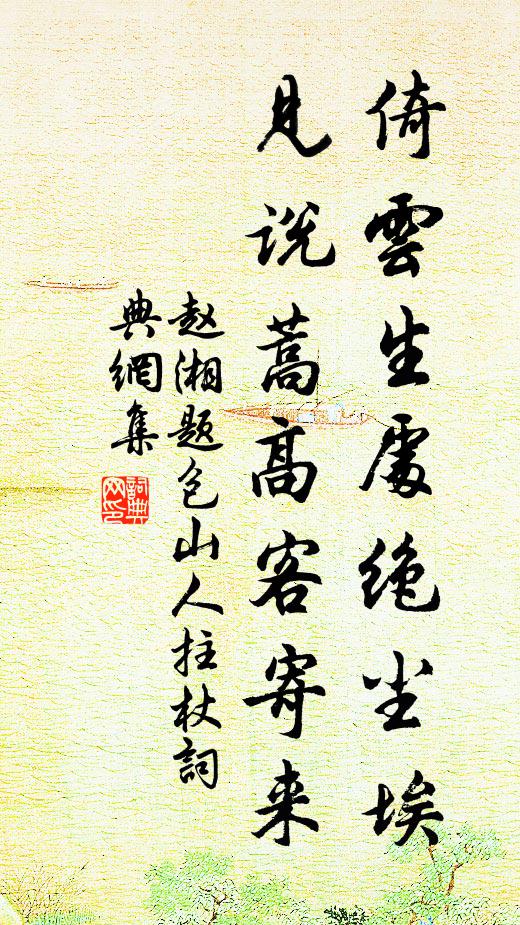 倚雲生處绝尘埃
見説蒿高客寄来
赵湘题包山人拄杖詞
典網集
詞典网印